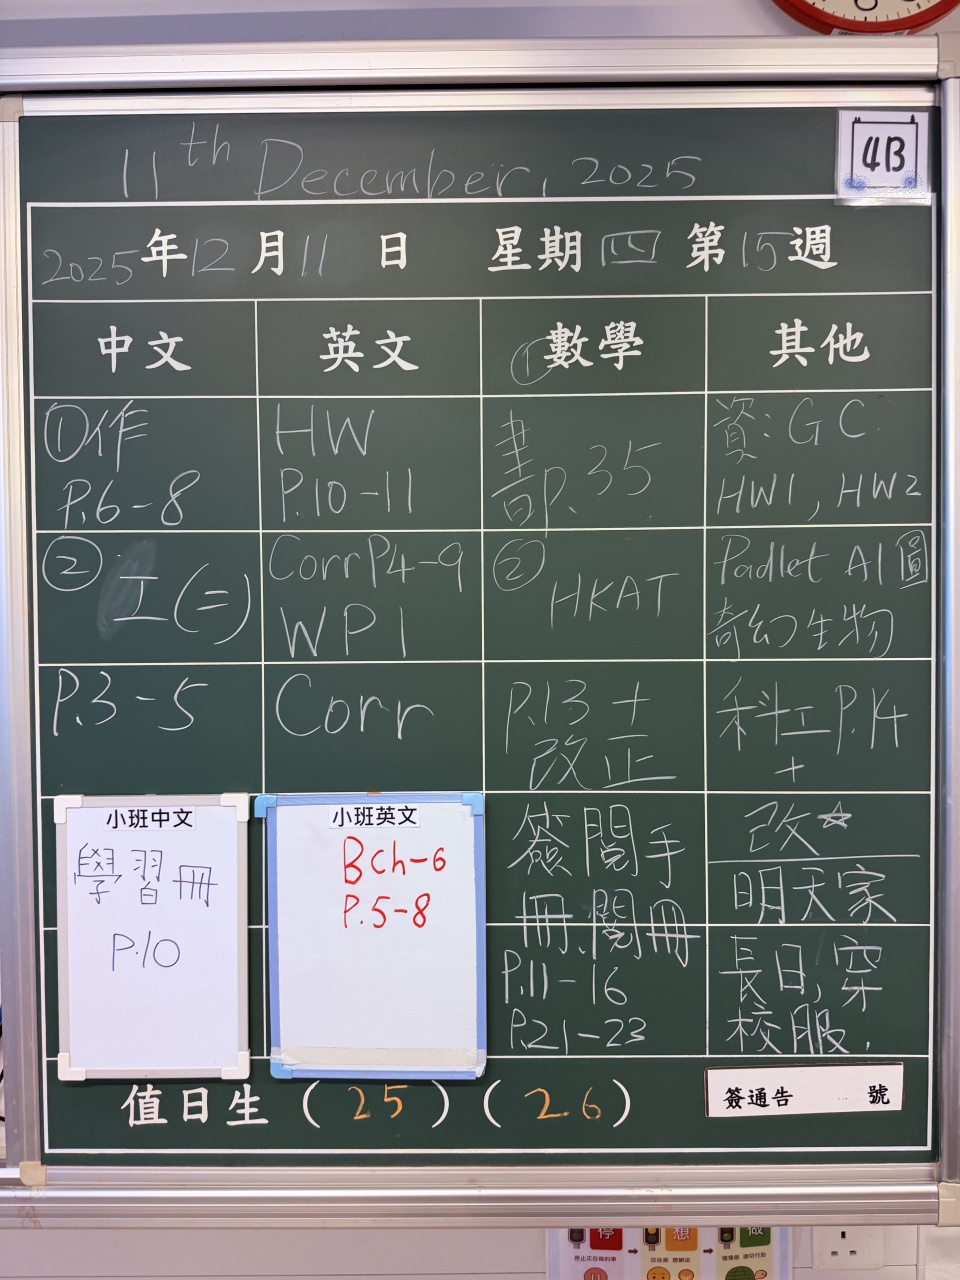 11th December, 2025
4B
2025年12月11日 星期四 第15週
中文
①作
P.6-8
② 工(二)
P.3-5
小班中文
學習冊
P.10
英文
HW
P.10-11
Corr P4-9
WP1
Corr
小班英文
BCh-6
P.5-8
① 數學
書P.35
② HKAT
P.13 +
改正
簽閱手
冊、閱冊
P.11-16
P.21-23
其他
資: GC
HW1, HW2
Padlet AI圖
奇幻生物
科工P.14
+
改☆
明天家
長日, 穿
校服.
值日生 (25) (26)
簽通告 號
停
想
做